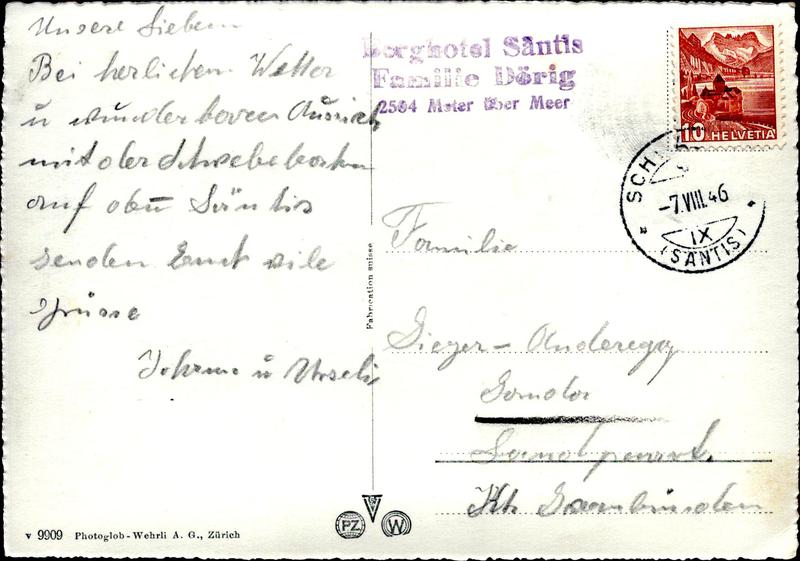 Unsere Lieben
Bei herlichem Wetter
u wunderbaren Aussich
mit der Schwebebahn
auf den Säntis
senden Euch viele
Grüsse
u Urseli
Berghotel Säntis
Familie Dörig
2504 Meter über Meer
10 HELVETIA
SCH
-7.VIII.46
IX
(SÄNTIS)
Familie
Gieger-Anderegg
Landquart.
Kt. Graubünden
Fabrication suisse
PZ
W
v 9909 Photoglob-Wehrli A. G., Zürich